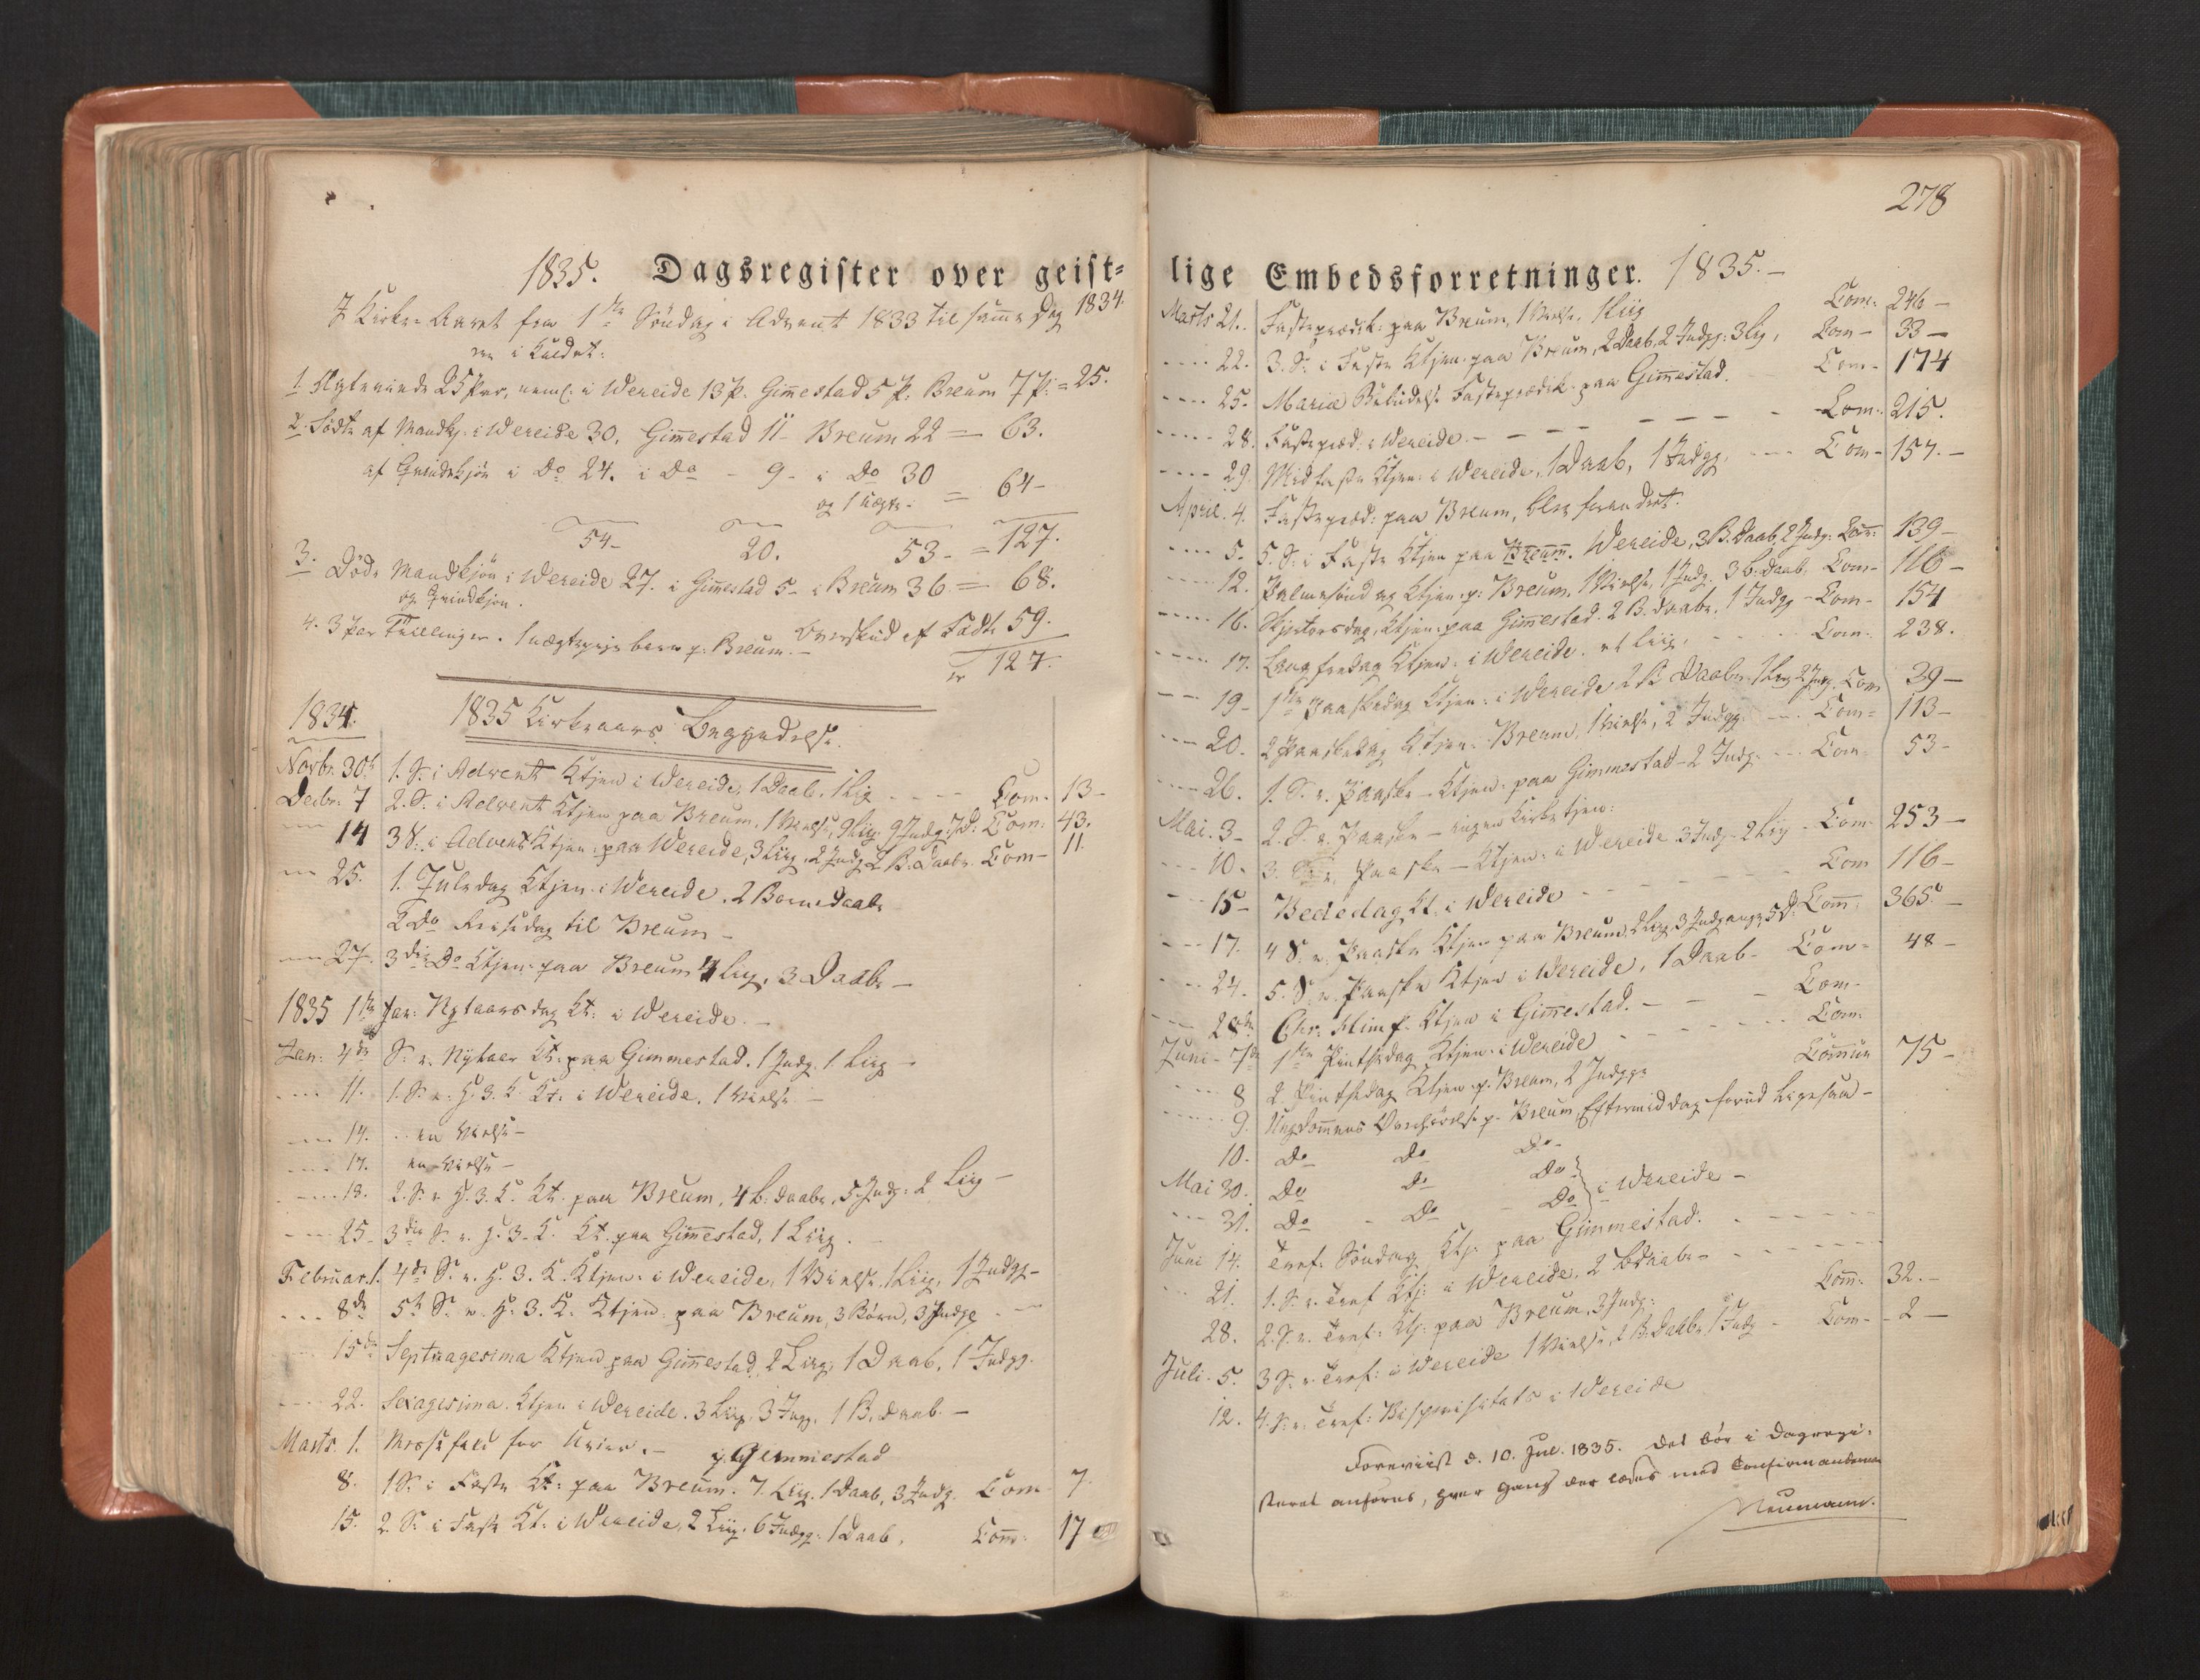 1835. Dagsregister over geist=
I Kirke Aaret fra 1ste Söndag i Advent 1833 til samme Dag 1834.
ere i Kaldet:
1. Ægteviede 25 Par, neml: i Wereide 13 P. Gim̄estad 5 P. Breum 7 P: = 25.
2. Födte af Mandkj: i Wereide 30, Gim̄estad 11 - Breum 22 = 63.
af Qvindekjön i Do 24. i Do - 9 - i Do 30
og 1 uægte. = 64 -
54 - 20. 53 - = 127.
3. Döde Mandkjön i Wereide 27. i Gim̄estad 5 - i Breum 36 = 68.
og Qvindkjön.
4. 3 Par Tvillinger. 1 uægte Barn p: Breum. - Overskud af Födte 59.
er 127.
1834. 1835 Kirkeaars Begyndelse.
Novbr. 30te 1. S. i Advent Ktjen i Wereide, 1 Daab, 1 Liig - - - Com. 13 -
Decbr. 7 2. S: i Advent Ktjen paa Breum, 1 Vielse, 9 Liig: 9 Indg: Com: 43.
14 3 S: i Advent Ktjen: paa Wereide, 3 Liig, 2 Indg 2 B. Daabe Com - 11.
25. 1. Juledag Ktjen i Wereide. 2 Börnedaabe
2 Do Reisedag til Breum -
27. 3die Do Ktjen: paa Breum 4 Liig, 3 Daabe -
1835 1ste Jan: Nytaarsdag Kt: i Wereide. -
Jan: 4de S. e. Nytaar Kt: paa Gimmestad. 1 Indg. 1 Liig -
11. 1. S. e. H. 3. K. Kt. i Wereide, 1 Vielse. -
14. en Vielse -
17. en Vielse -
18. 2. S. e. H. 3. K. Kt. paa Breum, 4 b. daabe, 5 Indg: 2 Liig -
25 - 3die S. e. H. 3. K. Kt. paa Gim̄estad, 1 Liig.
Februar. 1. 4de S. e. H. 3. K. Ktjen: i Wereide, 1 Vielse, 1 Liig, 1 Indgg -
8de 5te S. e. H. 3. K. Ktjen paa Breum, 3 Börn, 3 Indge
15de Septuagesima Ktjen paa Gim̄estad, 2 Liig, 1 Daab, 1 Indgg.
22. Sexagesima. Ktjen i Wereide. 3 Liig. 3 Ingg. 1 B. daab. -
Marts. 1. Messefald for Uveir. - p. Gemmestad
8. 1 S. i Faste Kt: paa Breum. 7 Liig. 1 Daab, 3 Indg. Com 7.
15. 2. S: i Faste Kt: i Wereide, 2 Liig, 6 Indgg: 1 Daab, Com̄: 17
278
lige Embedsforretninger. 1835. -
Marts 21. Fasteprædik: paa Breum, 1 Vielse, 1 Liig Com: 246 -
22. 3. S. i Faste Ktjen. paa Breum, 2 Daab, 2 Indgg: 3 Liig, Com - 33 -
25. Mariæ Bebudelse Fasteprædik. paa Gim̄estad. Com - 174
28. Fastepræd: i Wereide. - - - - Com. 215.
29. Midfaste Ktjen: i Wereide, 1 Daab, 1 Indgg. - - Com - 157. -
April. 4. Fastepræd: paa Breum, blev forandret.
5. 5. S: i Faste Ktjen paa Breum. Wereide, 3 B. Daab, 2 Indg: Com: 139 -
12. Palmesöndag Ktjen. p: Breum, 1 Vielse, 1 Indg: 3 b: daab, Com - 116 -
16. Skjertorsdag, Ktjen: paa Gim̄estad. 2 B. Daabe, 1 Indgg - Com - 154
17. Langfredag Ktjen: i Wereide. et Liig, - - Com: 238.
19 - 1ste Paaskedag Ktjen: i Wereide 2 B Daabe 1 Liig 2 Indg. Com 39 -
20. 2 Paaskedag Ktjen. Breum, 1 Vielse, 2 Indgg: - Com = 113 -
26. 1. S. e. Paaske - Ktjen: paa Gimmestad - 2 Indg: - - Com. 53 -
Mai. 3 - 2. S. e. Paaske - ingen Kirketjen:
10. 3. S. e. Paaske - Ktjen: i Wereide 3 Indg - 2 Liig - Com 253 -
15 - Bededag Kt. i Wereide - - - - Com 116 -
17. 4 S. e. Paaske Ktjen paa Breum, 2 Liig, 3 Indgange, 5 D: Com̄: 365. -
24. 5. S. e. Paaske Ktjen i Wereide, 1 Daab - Com - 48 -
28de Chr: Himf. Ktjen i Gim̄estad. - - - Com -
Juni - 7de 1ste Pintsedag Ktjen: i Wereide - - - Com:
8 2 Pintsedag Ktjen p. Breum, 2 Indgge Com̄un 75 -
9. Ungdom̄ens Overhörelse p. Breum, Eftermiddag forud Ligesaa -
10. Do Do Do -
Mai 30. Do Do Do
31. Do - Do - Do } i Wereide -
Juni 14. Tref. Söndag Ktj: paa Gimmestad. - - -
21. 1. S. e. Tref Ktj: i Wereide, 2 bdaabe - - -
28. 2. S. e. Tref: Ktj: paa Breum, 3 Indg: Com̄: 32. -
Juli. 5. 3 S. e. Tref: i Wereide 1 Vielse, 2 B. Daabe, 1 Indg - Com - 2 -
12. 4. S. e. Tref: Bispevisitats i Wereide
Foreviist d. 10. Jul. 1835. Det bör i Dagregi-
steret anföres, hver Gang der læses med Confirmanderne
Neumann.